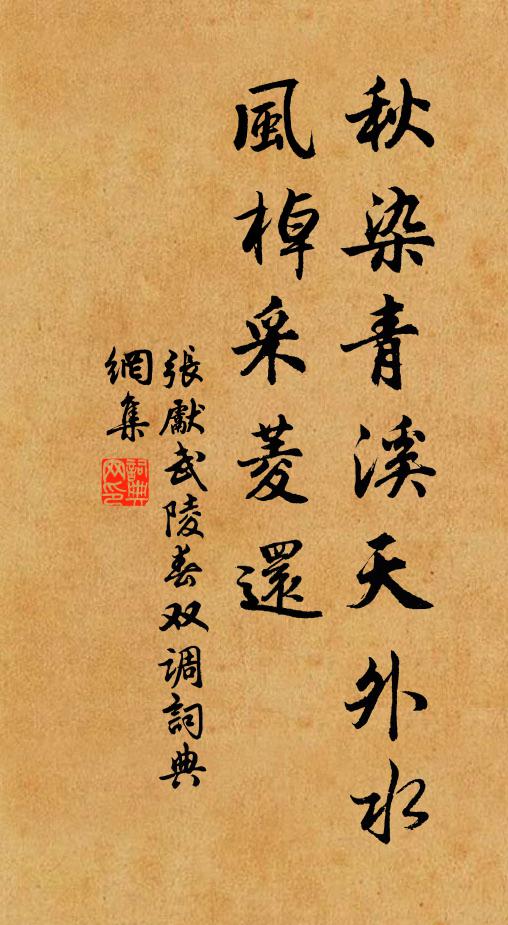 秋染青溪天外水
風棹采菱還
張獻武陵春双调詞典
網集
詞典網印